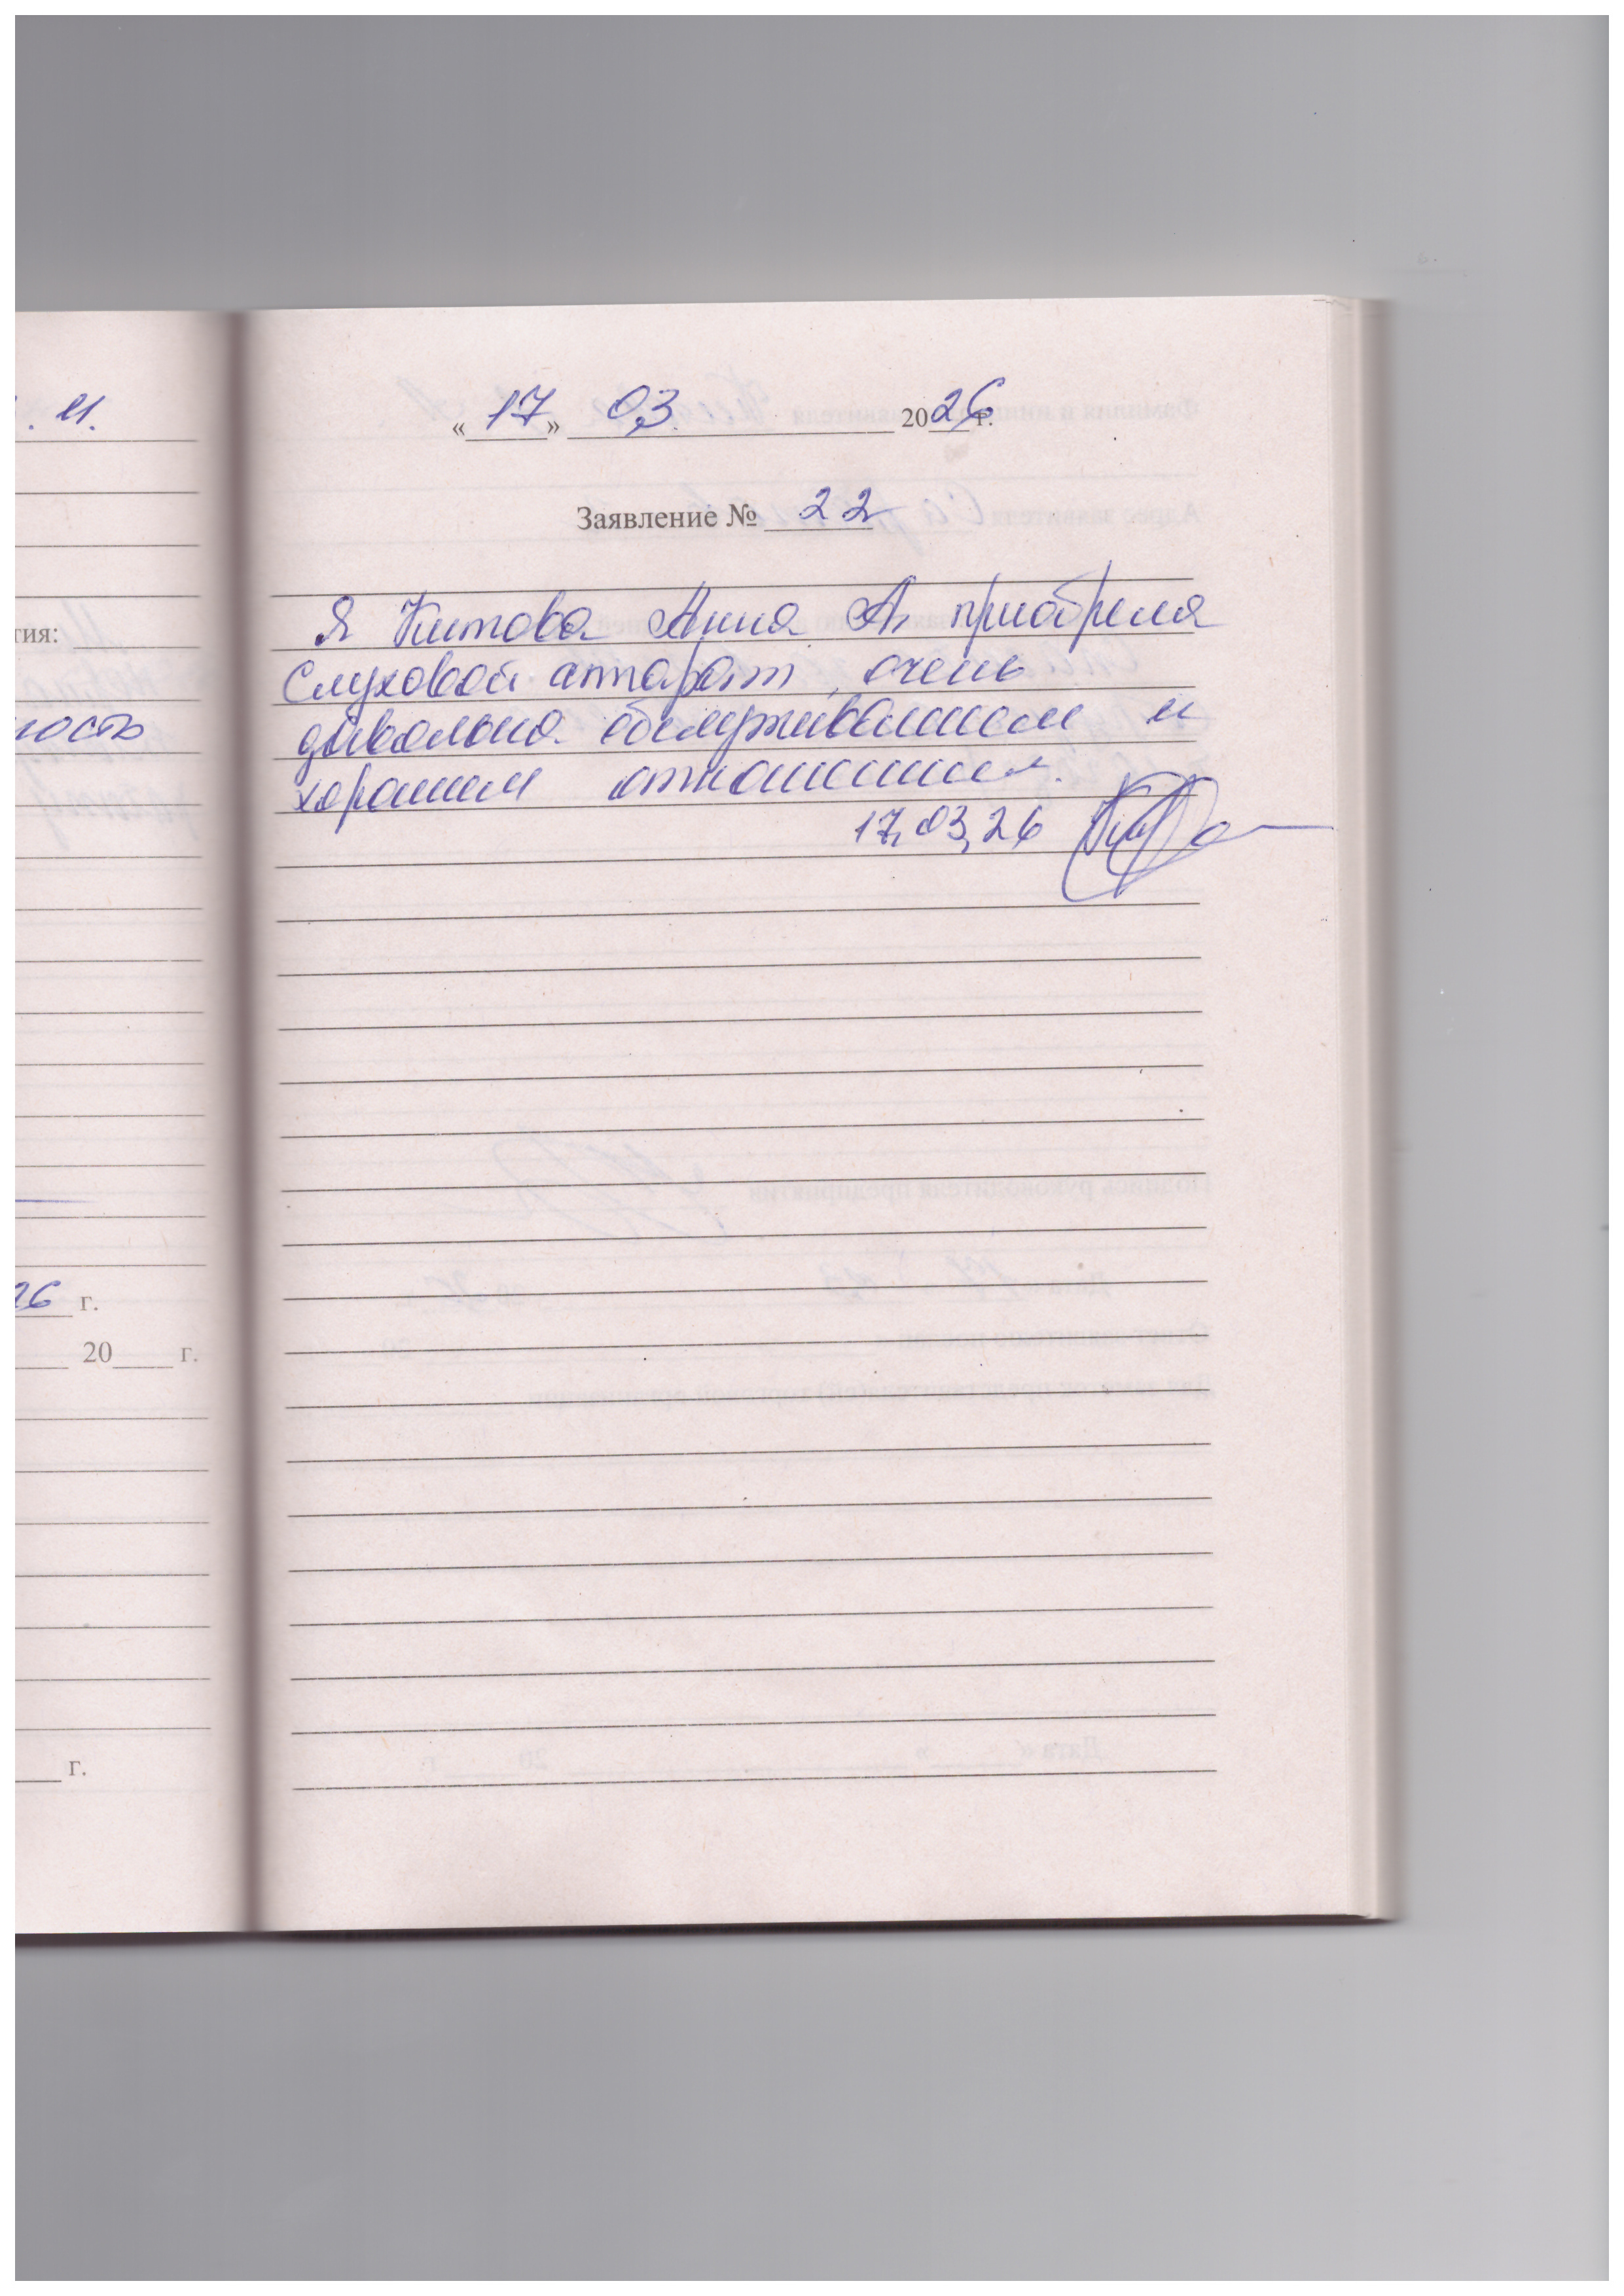 . И.
«17» 03. 2026 г.
Заявление № 22
Я Китова Анна А. приобрела
тия:
Слуховой аппарат, очень
довольна обслуживанием и
ность
хорошим отношением.
17,03,26
26 г.
20 г.
г.